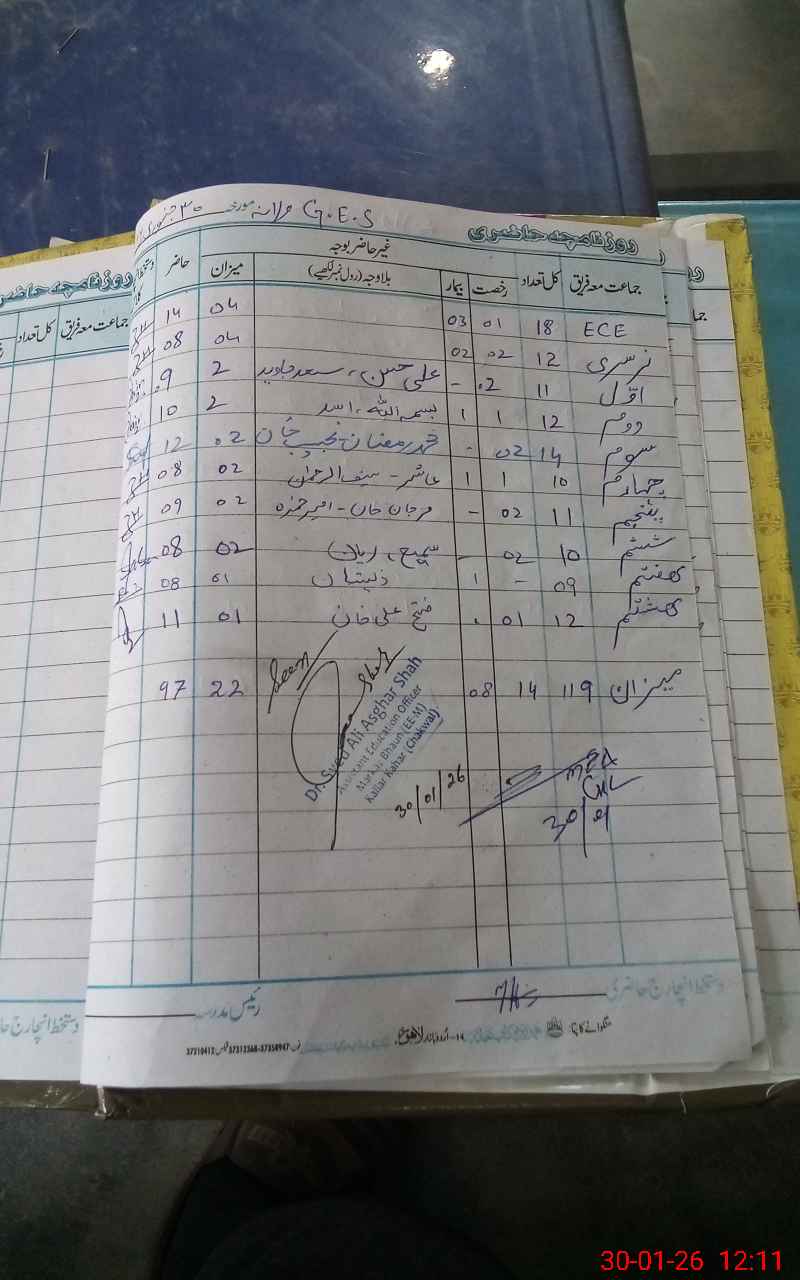 G.E.S مورخہ ۳۰ جنوری
روزنامچہ حاضری
جماعت معہ فریق کل تعداد غیر حاضر بوجہ میزان حاضر دستخط
رخصت بیمار بلا وجہ (رول نمبر لکھیے)
ECE 18 01 03 04 14
نرسری 12 02 02 04 08
اوّل 11 02 - علی حسن، سعد جاوید 2 9
دوم 12 1 1 بسم اللہ، اسد 2 10
سوم 14 02 - محمد رمضان 02 12
چہارم 10 1 1 عاشر - سیف الرحمان 02 08
پنجم 11 02 - مرجان خان - امیر حمزہ 02 09
ششم 10 02 - سمیع، ریان 02 08
ھفتم 09 - 1 ذیشان 01 08
ھشتم 12 01 . فتح علی خان 01 11
میزان 119 14 08 22 97
Seen
Dr. Syed Ali Asghar Shah
Assistant Education Officer
Markaz Bhaun (EE-M)
Kallar Kahar (Chakwal)
30/01/26
MEA
CKL
30/01
دستخط انچارج حاضری رئیس مدرسہ
منگوانے کا پتہ
اردو بازار لاہور
فون 37358947-37312368 فیکس 37310412
روزنامچہ حاضری
جماعت معہ فریق کل تعداد
دستخط انچارج
30-01-26 12:11